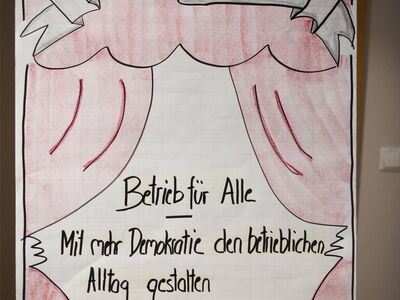 Betrieb für Alle
Mit mehr Demokratie den betrieblichen
Alltag gestalten